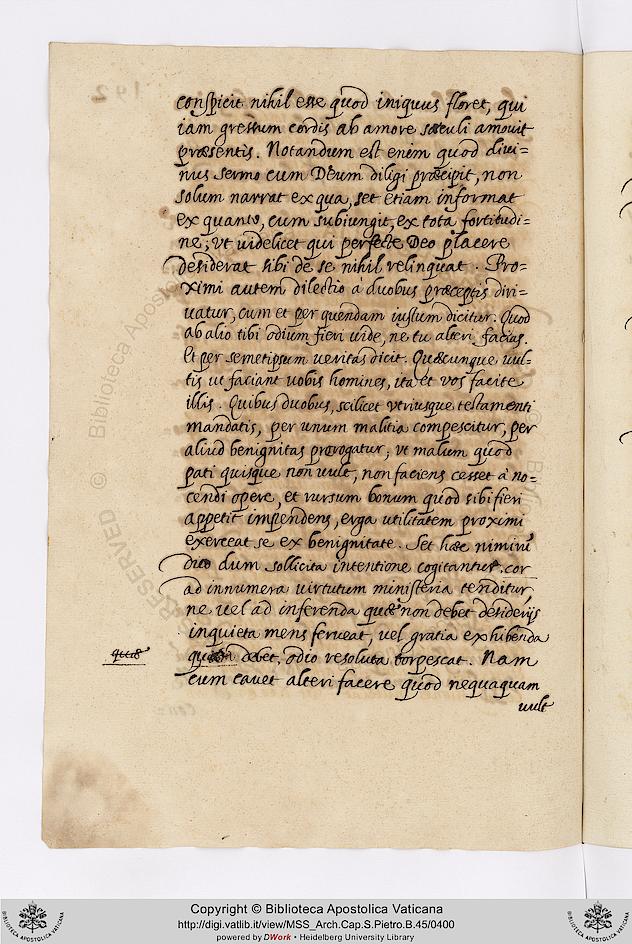 conspicit nihil esse quod iniquus floret, qui
iam gressum cordis ab amore sæculi amouit
præsentis. Notandum est enim quod diui=
nus sermo cum Deum diligi præcipit, non
solum narrat ex qua, set etiam informat
ex quanto, cum subiungit, ex tota fortitudi=
ne; vt uidelicet qui perfecte Deo placere
desiderat sibi de se nihil relinquat. Pro=
ximi autem dilectio à duobus præceptis diri=
uatur, cum et per quendam iustum dicitur. Quod
ab alio tibi odium fieri uide, ne tu alteri facias.
Et per semetipsum ueritas dicit. Quæcunque uul=
tis ut faciant uobis homines, ita et vos facite
illis. Quibus duobus, scilicet vtriusque testamenti
mandatis, per unum malitia compescitur, per
aliud benignitas prorogatur, vt malum quod
pati quisque non uult, non faciens cesset à no=
cendi opere, et rursum bonum quod sibi fieri
appetit impendens, erga utilitatem proximi
exerceat se ex benignitate. Set hæc nimirũ
duo dum sollicita intentione cogitantur, cor
ad innumera uirtutum ministeria tenditur,
ne uel ad inferenda quæ non debet desiderijs
inquieta mens ferueat, uel gratia exhibenda
quæ debet, odio resoluta torpescat. Nam
cum cauet alteri facere quod nequaquam
uult
192
© Biblioteca Apostolica Vaticana
Copyright © Biblioteca Apostolica Vaticana
http://digi.vatlib.it/view/MSS_Arch.Cap.S.Pietro.B.45/0400
powered by DWork • Heidelberg University Library